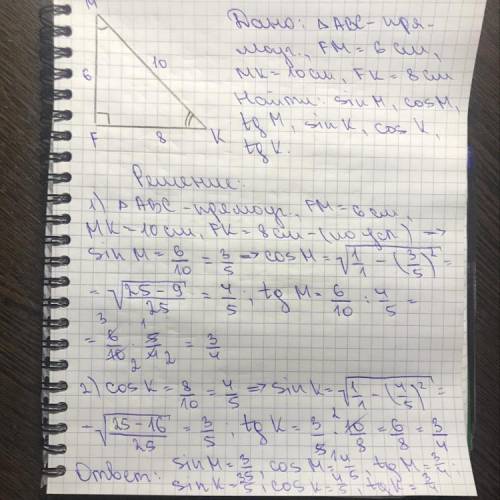 M
6
10
F
8
K
Дано: △ABC - пря-
моуг., FM = 6 см,
MK = 10 см, FK = 8 см
Найти: sin M, cos M,
tg M, sin K, cos K,
tg K.
Решение:
1) △ABC - прямоуг., FM = 6 см,
MK = 10 см, FK = 8 см - (по усл) ⟶
sin M = 6/10 = 3/5 ⇒ cos M = √(1/1 - (3/5)²) =
= √((25 - 9)/25) = 4/5; tg M = 6/10 : 4/5 =
= 6/10 · 5/4 = 3/4
2) cos K = 8/10 = 4/5 ⇒ sin K = √(1/1 - (4/5)²) =
= √((25 - 16)/25) = 3/5; tg K = 3/5 · 10/8 = 6/8 = 3/4
Ответ: sin M = 3/5, cos M = 4/5, tg M = 3/4,
sin K = 3/5, cos K = 4/5, tg K = 3/4